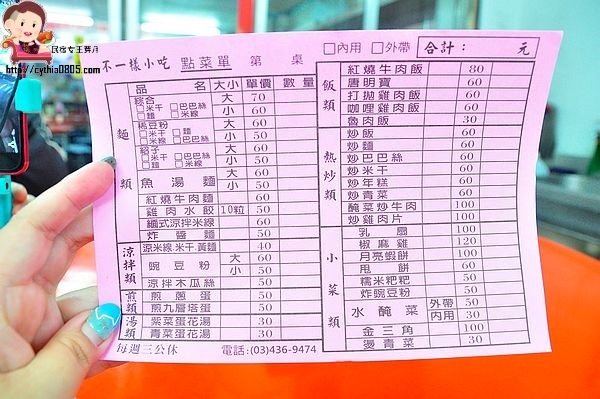 民宿女王芽月
http://cythia0805.com
不一樣小吃 點菜單 第 桌 □內用 □外帶 合計： 元
品 名 大小 單價 數量
麵類
綜合 □米干 □巴巴絲 □麵 □米線 大 70
小 60
稀豆粉 □米干 □麵 □米線 □巴巴絲 大 60
小 50
紹子 □米干 □巴巴絲 □麵 □米線 大 60
小 50
魚湯麵 大 60
小 50
紅燒牛肉麵 60
雞肉水餃 10粒 50
緬式涼拌米線 60
炸醬麵 50
涼拌類
涼米線.米干.黃麵 40
豌豆粉 大 60
小 50
涼拌木瓜絲 50
煎類
煎蔥蛋 50
煎九層塔蛋 50
湯類
紫菜蛋花湯 30
青菜蛋花湯 30
每週三公休 電話:(03)436-9474
飯類
紅燒牛肉飯 80
唐明寶 60
打拋雞肉飯 60
咖哩雞肉飯 60
魯肉飯 30
熱炒類
炒飯 60
炒麵 60
炒巴巴絲 60
炒米干 60
炒年糕 60
炒青菜 60
醃菜炒牛肉 100
炒雞肉片 100
小菜類
乳扇 100
椒麻雞 120
月亮蝦餅 100
甩餅 60
糯米粑粑 50
炸豌豆粉 50
水醃菜 外帶 50
內用 30
金三角 100
燙青菜 30